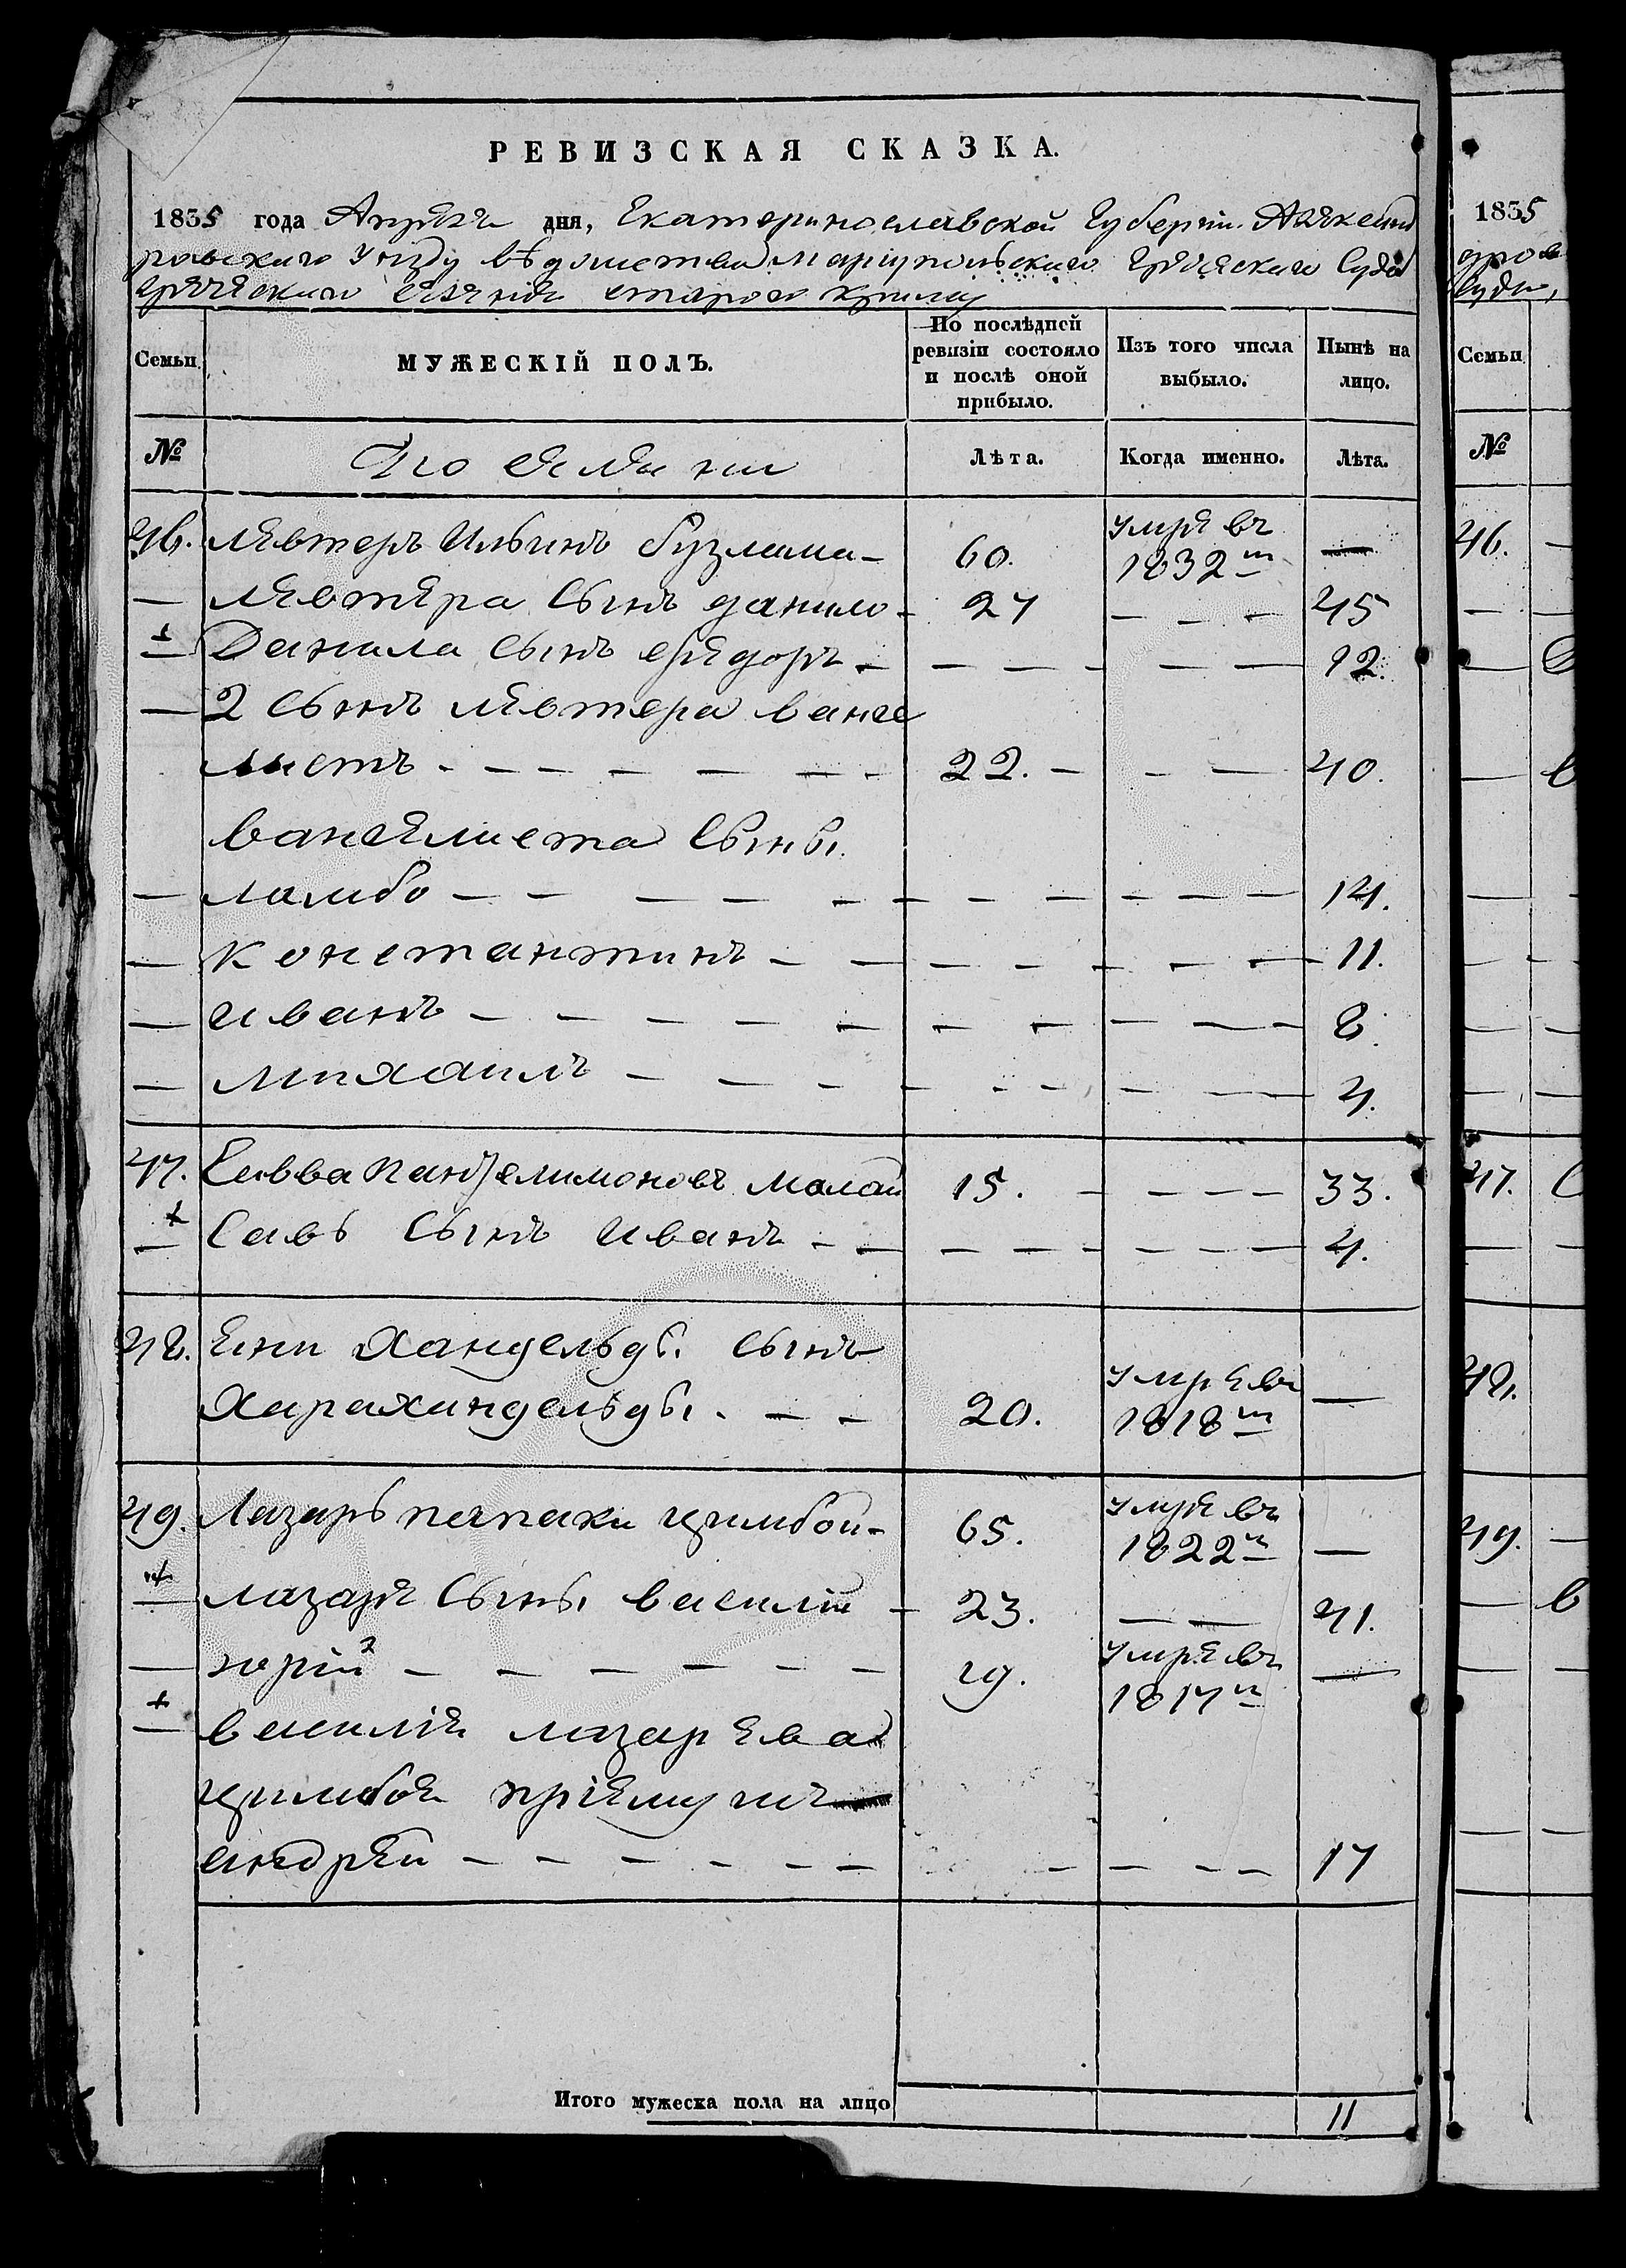 РЕВИЗСКАЯ СКАЗКА.
1835 года Апреля дня, Екатеринославской Губернiи Александ
ровскаго Уезду вѣдомства мариупольскаго греческаго Суда
греческаго селенiя старого крыма
Семьи
МУЖЕСКIЙ ПОЛЪ.
По послѣдней ревизiи состояло и послѣ оной прибыло.
Изъ того числа выбыло.
Нынѣ на лицо.
№
Поселяни
Лѣта.
Когда именно.
Лѣта.
46. левтеръ Ильинъ бузлама - 60. умре въ 1832м —
— левтера Сынъ данило - 27 — — — 45
— Данила Сынъ ефедоръ — — — — — 12.
— 2 Сынъ левтера ванге
листъ - - - 22. — — — 40.
вангелиста Сыны.
— ламбо — — — 14.
— константинъ — — — 11.
— иванъ — — — 8.
— михаилъ — — — 4.
47. Савва пантелимоновъ малай 15. — — — 33.
— Савы Сынъ иванъ — — — 4.
48. Ени Хандельды. Сынъ
Харахандельды. — — 20. умре въ 1818м —
49. Лазарь папаки цимбой - 65. умре въ 1822м —
— лазаря Сыны василiй - 23. — — 41.
— юрiй 2 — — — 19. умре въ 1817м —
— василiя лазарева
цимбоя прiемушъ
андрей — — — 17
Итого мужеска пола на лицо 11
1835
дров
Суда,
Семьи
№
46.
47. С
48.
49.
в